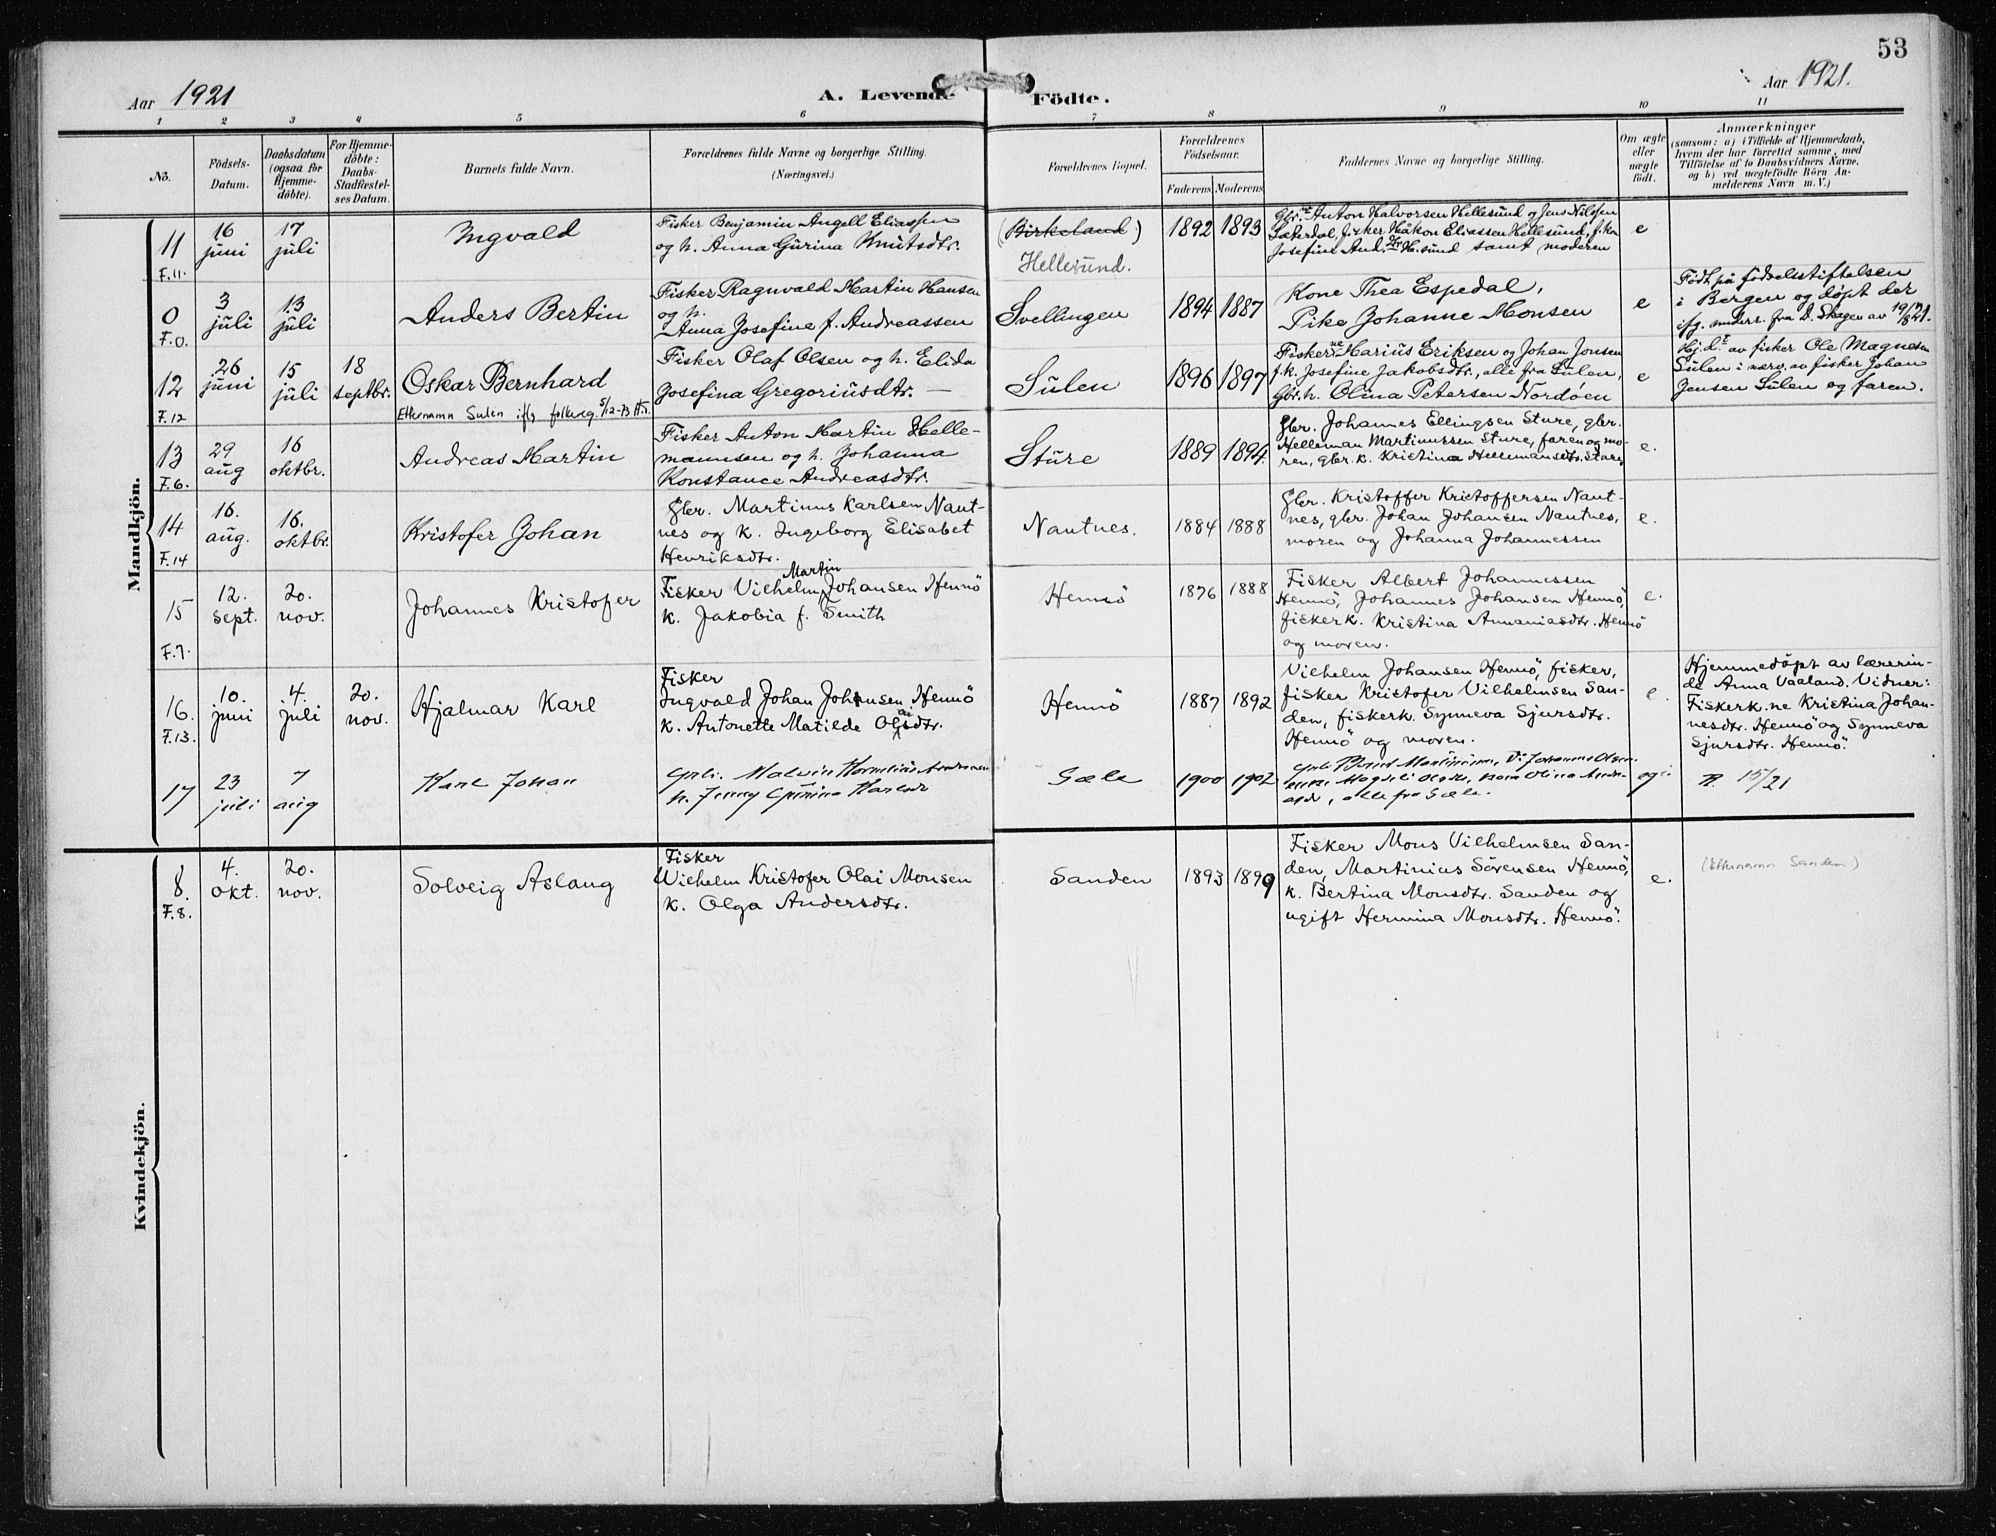 53
Aar 1921
A. Levende Födte.
Aar 1921.
1 2 3 4 5 6 7 8 9 10 11
No.
Födsels-
Datum.
Daabsdatum
(ogsaa for
Hjemme-
döbte).
For Hjemme-
döbte:
Daabs-
Stadfæstel-
ses Datum.
Barnets fulde Navn.
Forældrenes fulde Navne og borgerlige Stilling.
(Næringsvei.)
Forældrenes Bopæl.
Forældrenes
Födselsaar.
Faderens Moderens
Faddernes Navne og borgerlige Stilling.
Om ægte
eller
uægte
födt.
Anmærkninger
(saasom: a) i Tilfælde af Hjemmedaab,
hvem der har forrettet samme, med
Tilföielse af to Daabsvidners Navne,
og b) ved uægtefödte Börn An-
melderens Navn m. V.)
Mandkjön.
11
F.11.
16
juni
17
juli
Ingvald
Fisker Benjamin Angell Eliassen
og h. Anna Gurina Knutsdtr.
(Birkeland)
Hellesund.
1892 1893
Gbr.ne Anton Halvorsen Hellesund og Jens Nilssen
Sæterdal, fisker Håkon Eliassen Hellesund, f.kon
Josefine And. H.sund samt moderen
e
0
F.0.
3
juli
13
juli
Anders Bertin
Fisker Ragnvald Martin Hansen
og h.
Anna Josefine f. Andreassen
Svellingen
1894 1887
Kone Thea Espedal,
Pike Johanne Monsen
e
Födt på födselsstiftelsen
i Bergen og döpt der
ifg. underr. fra D. Skagen av 19/8 21.
12
F.12
26
juni
15
juli
18
septbr.
Oskar Bernhard
Etternamn Sulen ifg folkereg. 5/12-73
Fisker Olaf Olsen og h. Elida
Josefina Gregoriusdtr. —
Sulen
1896 1897
Fiskerne Marius Eriksen og Johan Jonsen
f.k. Josefine Jakobsdtr., alle fra Sulen,
Gbr.h. Olina Petersen Nordöen
e
Hj.d. av fisker Ole Magnesen
Sulen i nærv. av fisker Johan
Jensen Sulen og faren.
13
F.6.
29
aug
16
oktbr.
Andreas Martin
Fisker Anton Martin Helle-
mannsen og h. Johanna
Konstance Andreasdtr.
Sture
1889 1894
Gbr. Johannes Ellingsen Sture, gbr.
Helleman Martinussen Sture, faren og mo-
ren, gbr. k. Kristina Hellemansdtr. Sture
e.
14
F.14
16.
aug.
16.
oktbr.
Kristofer Johan
Gbr. Martinus Karlsen Naut-
nes og k. Ingeborg Elisabet
Henriksdtr.
Nautnes.
1884 1888
Gbr. Kristoffer Kristoffersen Naut-
nes, gbr. Johan Johansen Nautnes,
moren og Johanna Johannessen
e.
15
F.7.
12.
sept.
20.
nov.
Johannes Kristofer
Martin
Fisker Vilhelm Johansen Hennö
k. Jakobia f. Smith
Hennö
1876 1888
Fisker Albert Johannessen
Hennö, Johannes Johansen Hennö,
fiskerk. Kristina Annaniasdtr. Hennö
og moren.
e.
16.
F.13.
10.
juni
4.
juli
20.
nov.
Hjalmar Karl
Fisker
Ingvald Johan Johansen Hennö
k. Antonette Matilde Olsdtr.
Hennö
1887 1892
Vilhelm Johansen Hennö, fisker,
fisker Kristofer Vilhelmsen San-
den, fiskerk. Synneva Sjursdtr.
Hennö og moren.
e.
Hjemmedöpt av lærerin-
de Anna Vaaland. Vidner:
Fiskerk.ne Kristina Johan-
nesdtr. Hennö og Synneva
Sjursdtr. Hennö.
17
23
juli
7
aug
Karl Johan
Malvin Kornelius Andersen
h. Jenny Gurine Karlsdtr
Sæle
1900 1902
alle fra Sæle.
15/21
Kvindekjön.
8.
F.8.
4.
okt.
20.
nov.
Solveig Aslaug
Fisker
Wilhelm Kristofer Olai Monsen
k. Olga Andersdtr.
Sanden
1893 1899
Fisker Mons Vilhelmsen San-
den, Martinius Sörensen Hennö,
k. Bertina Monsdtr. Sanden og
ugift Hermina Monsdtr. Hennö.
e.
(Etternamn Sanden)